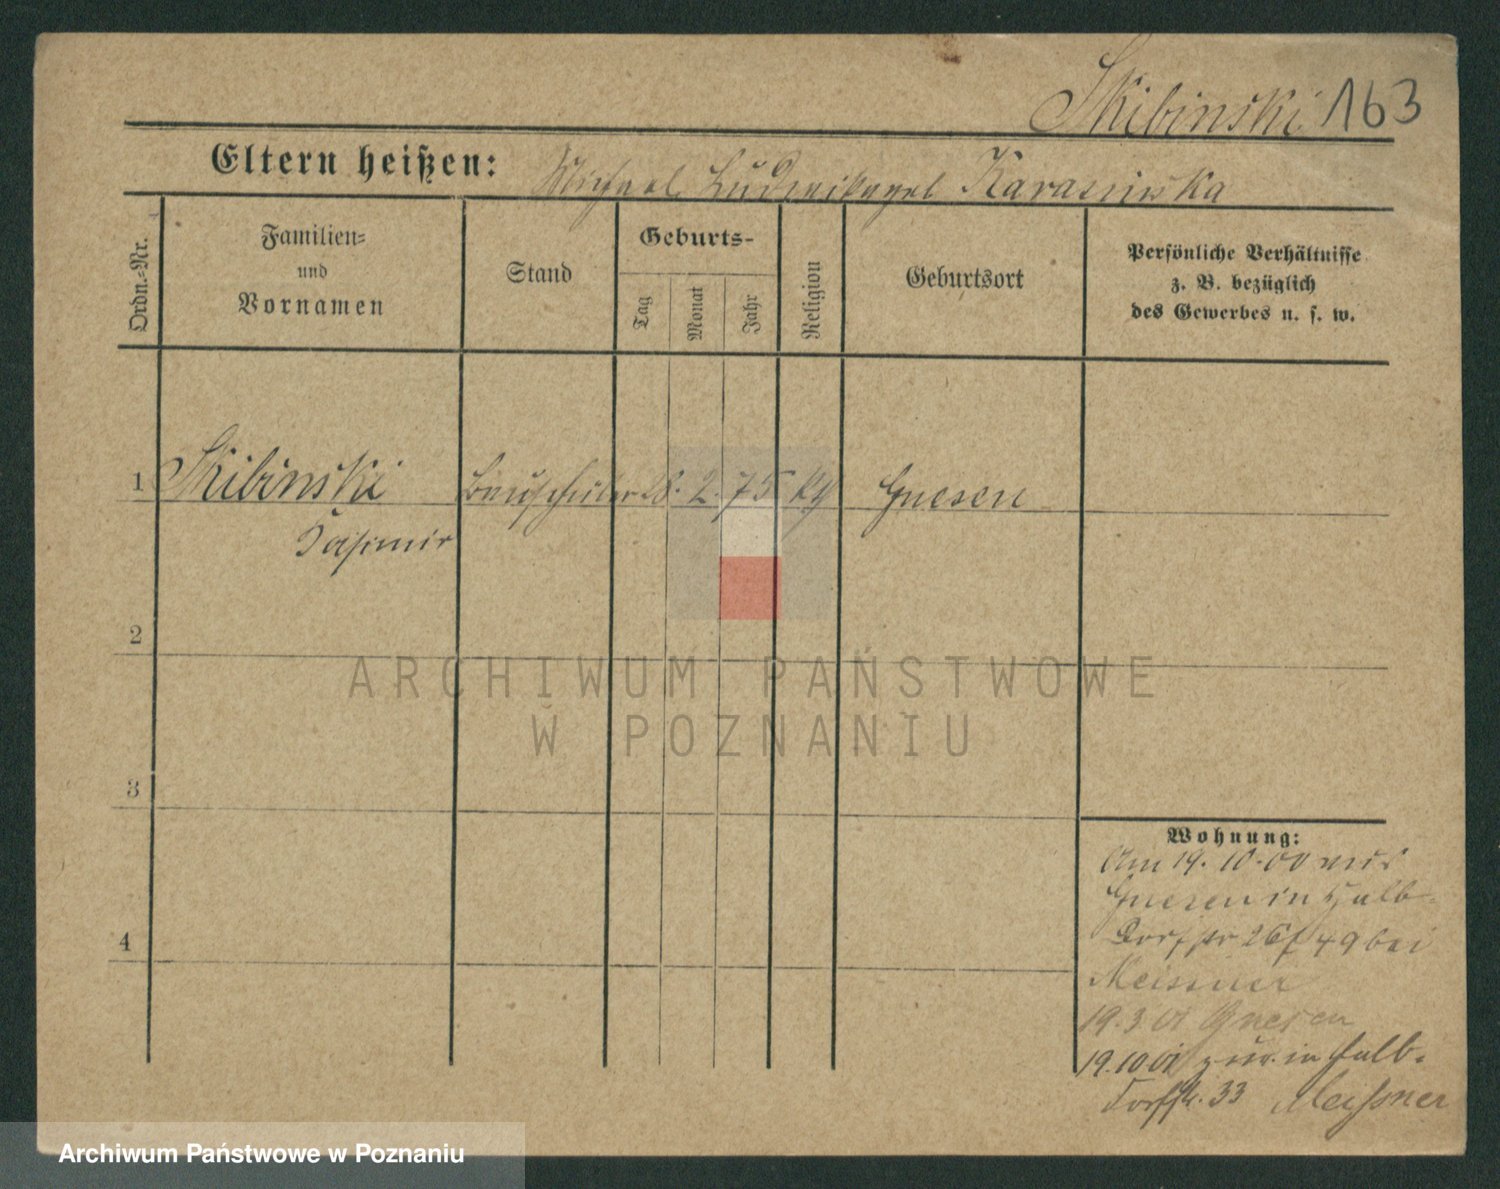 Skibinski 163
Eltern heißen: Michael Ludwika geb Karasinska
Ordn.-Nr.
Familien-
und
Vornamen
Stand
Geburts-
Tag
Monat
Jahr
Religion
Geburtsort
Persönliche Verhältnisse
z. B. bezüglich
des Gewerbes u. s. w.
1 Skibinski Bauschüler 28. 2. 75 kth Gnesen
Kasimir
2
3
4
Wohnung:
Am 19. 10. 00 aus
Gnesen in Halb-
Dorfstr 26 49 bei
Meissner
19. 3 01 Gnesen
19. 10 01 zur. in Halb-
dorfstr. 33 Meißner
ARCHIWUM PAŃSTWOWE
W POZNANIU
Archiwum Państwowe w Poznaniu